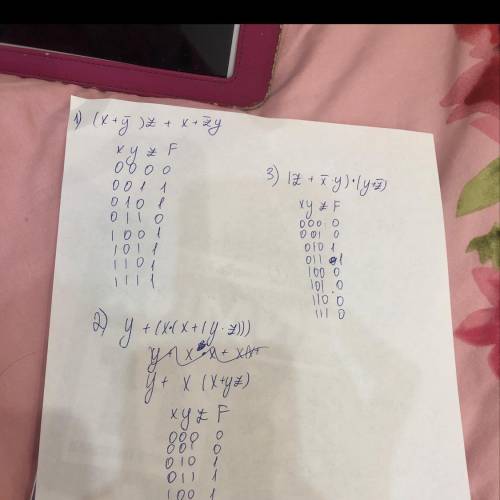 1) (x+ȳ)z + x+z̄y
x y z F
0 0 0 0
0 0 1 1
0 1 0 1
0 1 1 0
1 0 0 1
1 0 1 1
1 1 0 1
1 1 1 1
3) (z + x̄·y)·(y+z̄)
x y z F
000 0
001 0
010 1
011 1
100 0
101 0
110 0
111 0
2) y + (x·(x+(y·z)))
y + x (x+yz)
x y z F
000 0
001 0
010 1
011 1
100 1